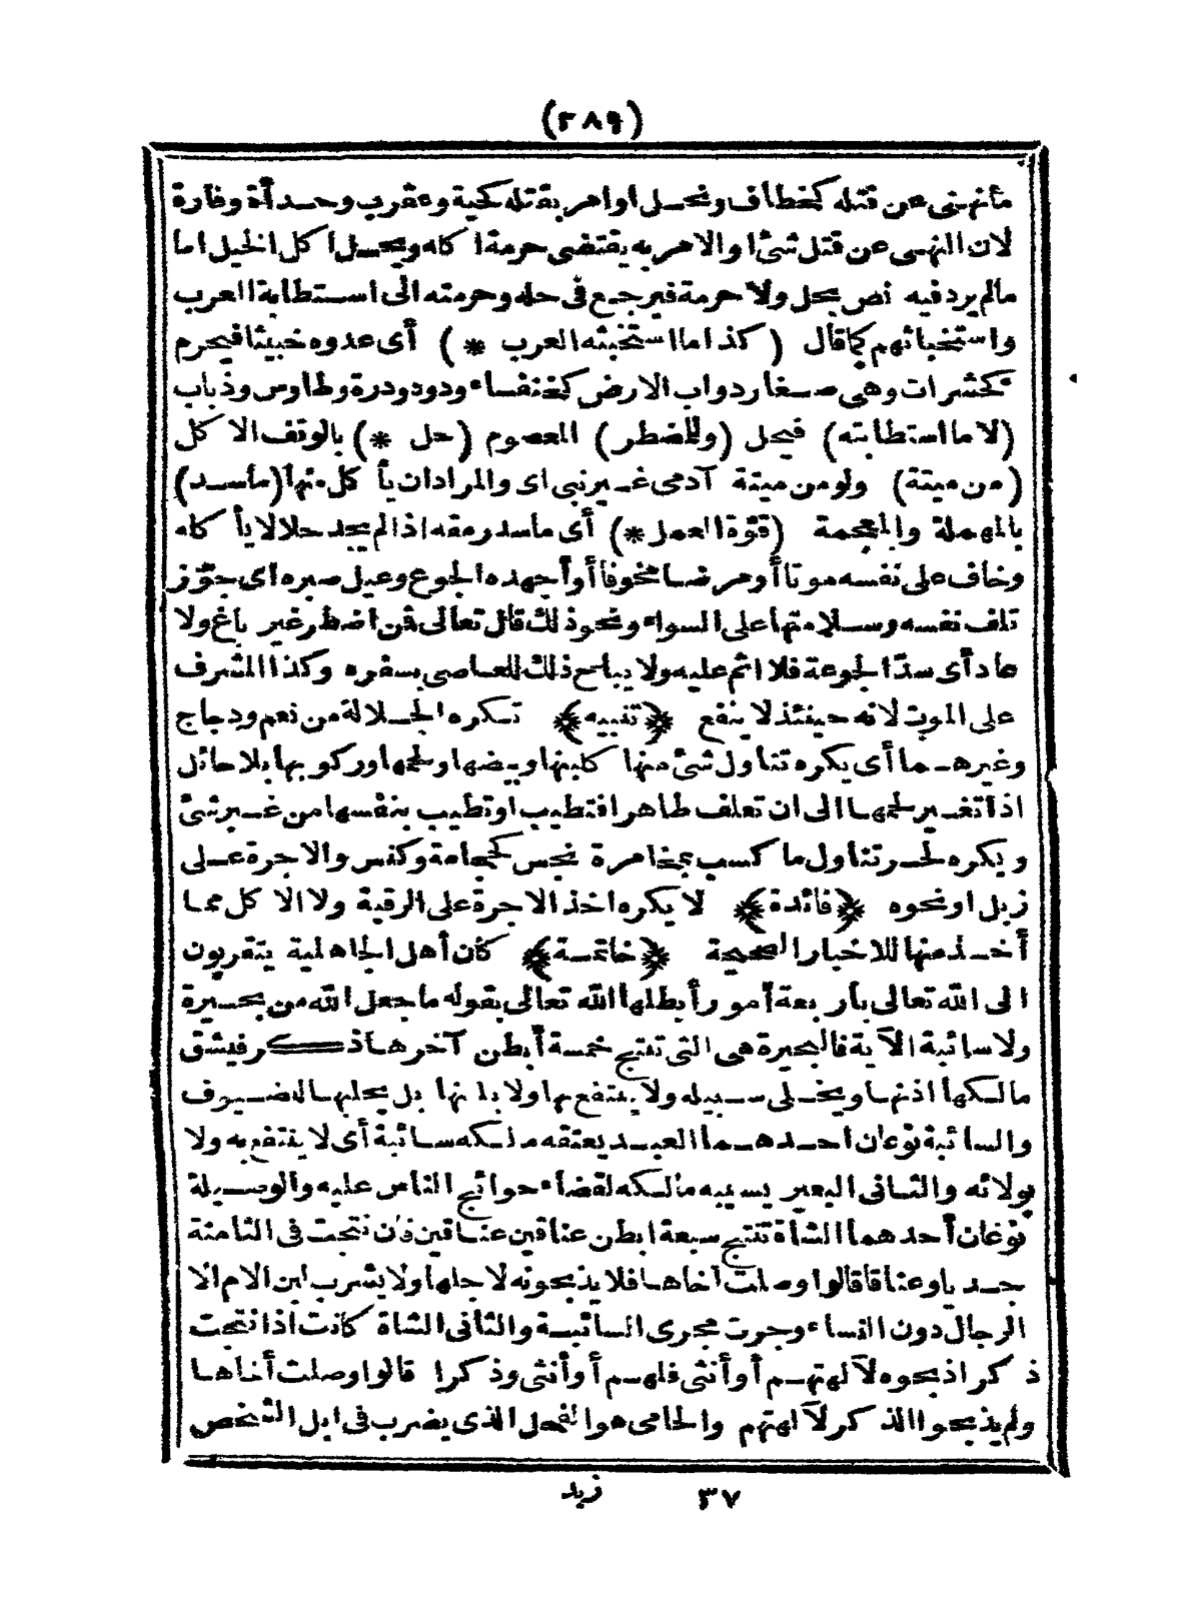 (٢٨٩)
مانهى عن قتله كخطاف ونحل او امر بقتله كحية وعقرب وحدأة وفارة
لان النهى عن قتل شئ او الامر به يقتضى حرمة اكله ويحل اكل الخيل اما
مالم يرد فيه نص بحل ولا حرمة فيرجع فى حله وحرمته الى استطابة العرب
واستخباثهم كما قال (كذا ما استخبثه العرب *) أى عدوه خبيثا فيحرم
كحشرات وهى صغار دواب الارض كخنفساء ودود ودرة وطاوس وذباب
(لا ما استطابته) فيحل (وللمضطر) المعصوم (حل *) بالوقف الا كل
(من ميتة) ولو من ميتة آدمى غير نبى اى والمراد ان يأ كل منها (ماسد)
بالمهملة والمعجمة (قوّة العمل *) أى ماسد رمقه اذا لم يجد حلالا يأ كله
وخاف على نفسه موتا أو مرضا مخوفا أو أجهده الجوع وعيل صبره اى جوّز
تلف نفسه وسلامتها على السواء ونحو ذلك قال تعالى فمن اضطر غير باغ ولا
عاد أى سدّ الجوعة فلا اثم عليه ولا يباح ذلك للعاصى بسفره وكذا المشرف
على الموت لانه حينئذ لا ينفع ﴿تنبيه﴾ تكره الجلالة من نعم ودجاج
وغيرها أى يكره تناول شئ منها كلبنها وبيضها ولحمها وركوبها بلا حائل
اذا تغير لحمها الى ان تعلف طاهرا فتطيب او تطيب بنفسها من غير شئ
ويكره لحر تناول ما كسب بمخامرة نجس كحجامة وكنس والاجرة على
زبل او نحوه ﴿فائدة﴾ لا يكره اخذ الاجرة على الرقية ولا الا كل مما
أخذ منها للاخبار الصحيحة ﴿خاتمة﴾ كان أهل الجاهلية يتقربون
الى الله تعالى بأربعة أمور أبطلها الله تعالى بقوله ما جعل الله من بحيرة
ولا سائبة الآية فالبحيرة هى التى تنتج خمسة أبطن آخرها ذكر فيشق
مالكها اذنها ويخلى سبيله ولا ينتفع بها ولا بلبنها بل يحلبها للضيوف
والسائبة نوعان احدهما العبد يعتقه مالكه سائبة أى لا ينتفع به ولا
بولائه والثانى البعير يسيبه مالكه لقضاء حوائج الناس عليه والوصيلة
نوعان أحدهما الشاة تنتج سبعة ابطن عناقين عناقين فان نتجت فى الثامنة
جديا وعناقا قالوا وصلت اخاها فلا يذبحونه لاجلها ولا يشرب لبن الام الا
الرجال دون النساء وجرت مجرى السائبة والثانى الشاة كانت اذا نتجت
ذ كرا ذبحوه لآلهتهم أو أنثى فلهم أو أنثى وذ كرا قالوا وصلت أخاها
ولم يذبحوا الذ كر لآلهتهم والحامى هو الفحل الذى يضرب فى ابل الشخص
٣٧ زبد